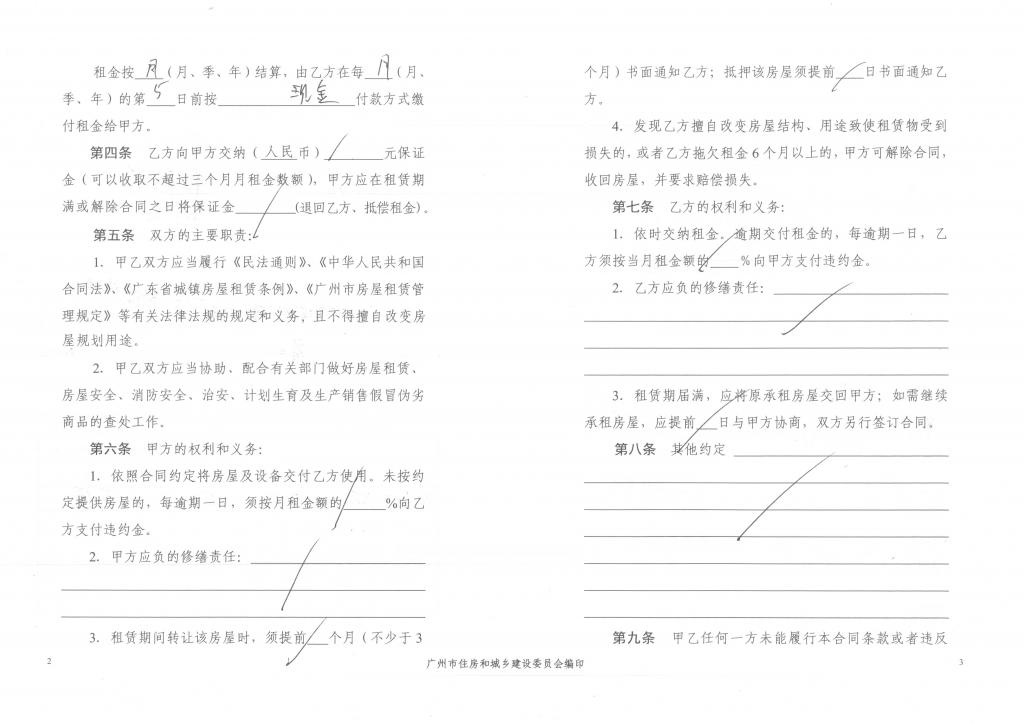 租金按月（月、季、年）结算，由乙方在每月（月、
季、年）的第5日前按 现金 付款方式缴
付租金给甲方。
第四条 乙方向甲方交纳（人民币）／元保证
金（可以收取不超过三个月月租金数额），甲方应在租赁期
满或解除合同之日将保证金＿＿＿(退回乙方、抵偿租金)。
第五条 双方的主要职责：
1. 甲乙双方应当履行《民法通则》、《中华人民共和国
合同法》、《广东省城镇房屋租赁条例》、《广州市房屋租赁管
理规定》等有关法律法规的规定和义务，且不得擅自改变房
屋规划用途。
2. 甲乙双方应当协助、配合有关部门做好房屋租赁、
房屋安全、消防安全、治安、计划生育及生产销售假冒伪劣
商品的查处工作。
第六条 甲方的权利和义务：
1. 依照合同约定将房屋及设备交付乙方使用。未按约
定提供房屋的，每逾期一日，须按月租金额的／%向乙
方支付违约金。
2. 甲方应负的修缮责任：
3. 租赁期间转让该房屋时，须提前／个月（不少于3
2
个月）书面通知乙方；抵押该房屋须提前／日书面通知乙
方。
4. 发现乙方擅自改变房屋结构、用途致使租赁物受到
损失的，或者乙方拖欠租金6个月以上的，甲方可解除合同，
收回房屋，并要求赔偿损失。
第七条 乙方的权利和义务：
1. 依时交纳租金。逾期交付租金的，每逾期一日，乙
方须按当月租金额的＿＿%向甲方支付违约金。
2. 乙方应负的修缮责任：
3. 租赁期届满，应将原承租房屋交回甲方；如需继续
承租房屋，应提前＿＿日与甲方协商，双方另行签订合同。
第八条 其他约定
第九条 甲乙任何一方未能履行本合同条款或者违反
广州市住房和城乡建设委员会编印
3